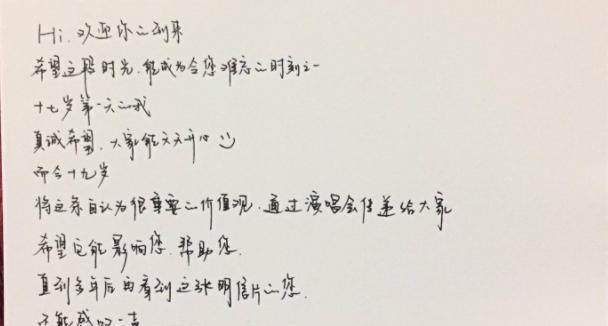 Hi. 欢迎你的到来
希望这段时光,能成为令您难忘的时刻之一
十七岁第一天的我
真诚希望,大家能天天开心
而今十九岁
将这条自认为很重要的价值观,通过演唱会传递给大家
希望它能影响您,帮助您.
直到多年后再看到这张明信片的您.